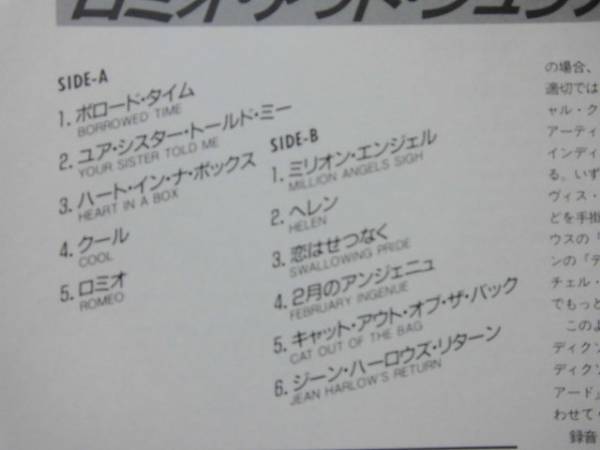 ロミオ・アンド・ジュリア
SIDE-A
1. ボロード・タイム
BORROWED TIME
2. ユア・シスター・トールド・ミー
YOUR SISTER TOLD ME
3. ハート・イン・ナ・ボックス
HEART IN A BOX
4. クール
COOL
5. ロミオ
ROMEO
SIDE-B
1. ミリオン・エンジェル
MILLION ANGELS SIGH
2. ヘレン
HELEN
3. 恋はせつなく
SWALLOWING PRIDE
4. 2月のアンジェニュ
FEBRUARY INGENUE
5. キャット・アウト・オブ・ザ・バック
CAT OUT OF THE BAG
6. ジーン・ハーロウズ・リターン
JEAN HARLOW'S RETURN
の場合、
適切では
ャル・ク
アーティ
インディ
る。いず
ヴィス・
どを手掛
ウスの「
ンの『デ
チェル・
でもっと
このよ
ディクソ
ディクソ
アード』
わせて・
録音